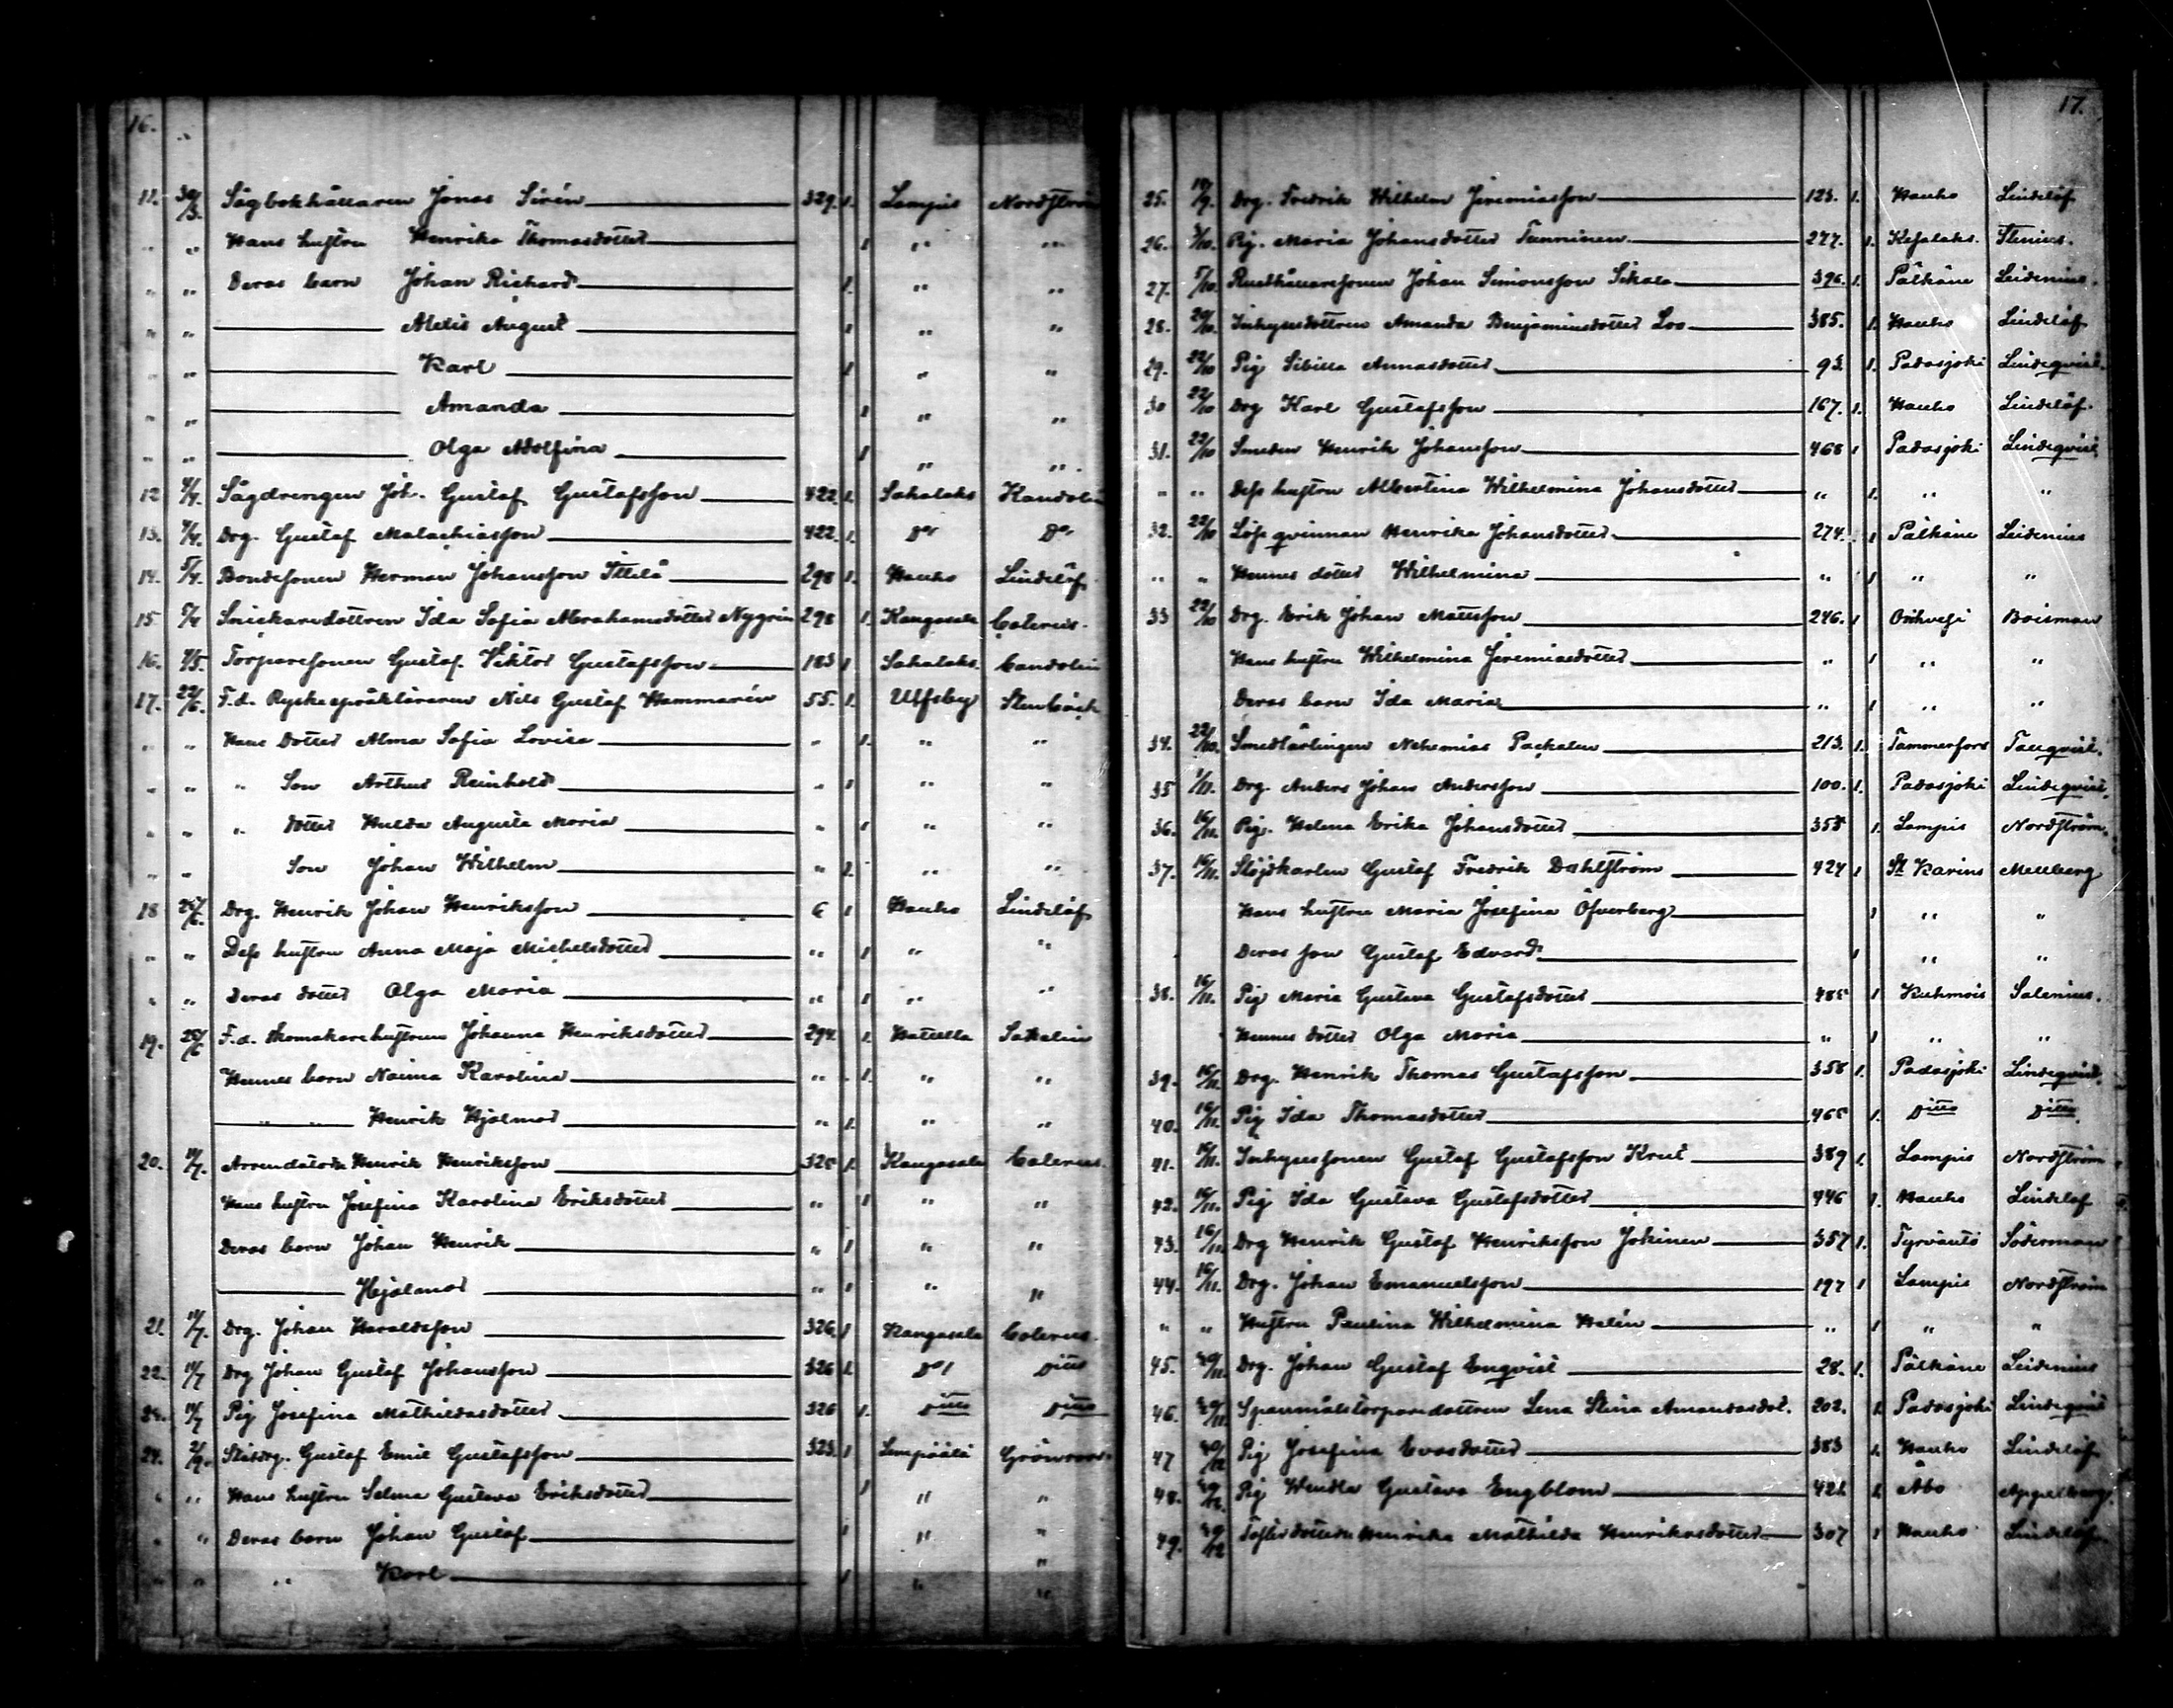 16.
11. 30/3. Sågbokhållaren Jonas Sirén 329. 1. Lampis Nordström
" " Hans hustru Henrika Thomasdotter 1 " "
" " Deras barn Johan Richard 1. " "
" " Alexis August 1 " "
" " Karl 1 " "
" " Amanda 1 " "
" " Olga Adolfina 1 " "
12 4/4. Sågdrengen Joh. Gustaf Gustafsson 422. 1. Sahalaks Kandolin
13. 4/4. Drg. Gustaf Malachiasson 422. 1. Do Do
14. 5/4. Bondesonen Herman Johansson Ittilä 298 1. Hauho Lindelöf
15 5/4 Snickaredottren Ida Sofia Abrahamsdotter Nygrén 298 1. Kangasala Calenius.
16. 7/5. Torparesonen Gustaf Viktor Gustafsson 183 1. Sahalaks. Candolin
17. 22/6. F.d. Ryskaspråkläraren Nils Gustaf Hammarén 55. 1. Ulfsby Stenbäck
" " Hans Dotter Alma Sofia Lovisa " 1. " "
" " " Son Arthur Reinhold " 1 " "
" " " dotter Hulda Augusta Maria " 1 " "
" " Son Johan Wilhelm " 1. " "
18 25/6. Drg. Henrik Johan Henriksson 6 1 Hauho Lindelöf
" " Dess hustru Anna Maja Michelsdotter " 1 " "
" " Deras dotter Olga Maria " 1 " "
19. 25/6 F.d. Skomakarehustrun Johanna Henriksdotter 294. 1. Hattula Sahalin
Hennes barn Naima Karolina " 1. " "
" " Henrik Hjalmar " 1. " "
20. 14/7. Arrendatorn Henrik Henriksson 325 1. Kangasala Calenius.
Hans hustru Josefina Karolina Eriksdotter " 1 " "
Deras barn Johan Henrik " 1 " "
Hjalmar " 1 " "
21. 14/7. Drg. Johan Haraldsson 326. 1 Kangasala Calenius.
22. 14/7 Drg Johan Gustaf Johansson 326 1. Do Ditto
23. 14/7 Pig Josefina Mathildasdotter 326 1. Ditto Ditto
24. 2/9. Statdrg. Gustaf Emil Gustafsson 323. 1 Lempäälä Grönroos.
" " Hans hustru Selma Gustava Eriksdotter 1 " "
" " Deras barn Johan Gustaf 1 " "
" " " Karl 1 " "
17.
25. 17/9. Drg. Fredrik Wilhelm Jeremiasson 123. 1. Hauho Lindelöf
26. 3/10. Pig. Maria Johansdotter Tamminen 277. 1. Kesalaks. Stenius.
27. 5/10. Rusthållaresonen Johan Simonsson Sikala 396. 1. Pälkäne Leidenius.
28. 20/10. Inhysesdottren Amanda Benjaminsdotter Loo 385. 1. Hauho Lindelöf
29. 22/10 Pig Sibilla Annasdotter 93. 1. Padasjoki Lindeqvist.
30 22/10 Drg Karl Gustafsson 167. 1. Hauho Lindelöf.
31. 22/10 Smeden Henrik Johansson 468 1 Padasjoki Lindeqvist
" " Dess hustru Albertina Wilhelmina Johansdotter " 1. " "
32. 22/10 Lös qvinnan Henrika Johansdotter. 274. 1 Pälkäne Leidenius
" " Hennes dotter Wilhelmina " 1 " "
33 22/10 Drg. Erik Johan Mattsson 246. 1 Orihvesi Boisman
Hans hustru Wilhelmina Jeremiasdotter " 1 " "
Deras barn Ida Maria " 1 " "
34. 22/10. Smedlärlingen Nehemias Packalen 213. 1. Tammerfors Tanqvist.
35 1/11. Drg. Anders Johan Andersson 100. 1. Padasjoki Lindeqvist.
36. 16/11. Pig. Helena Erika Johansdotter 358 1. Lampis Nordström.
37. 16/11. Slöjdkarlen Gustaf Fredrik Dahlström 424 1 St Karins Mellberg
Hans hustru Maria Josefina Öfverberg 1 " "
Deras son Gustaf Edvard 1 " "
38. 16/11. Pig Maria Gustava Gustafsdotter 485 1 Kuhmois Salenius.
Hennes dotter Olga Maria " 1 " "
39. 16/11. Drg. Henrik Thomas Gustafsson 358 1. Padasjoki Lindeqvist.
40. 16/11. Pig Ida Thomasdotter 465 1. Ditto Ditto
41. 16/11. Inhysessonen Gustaf Gustafsson Krut 389 1. Lampis Nordström
42. 16/11. Pig Ida Gustava Gustafsdotter 446 1. Hauho Lindelöf
43. 16/11. Drg Henrik Gustaf Henriksson Jokinen 357 1. Tyrväntö Söderman
44. 16/11. Drg. Johan Emanuelsson 197 1 Lampis Nordström
" " Hustru Paulina Wilhelmina Helén " 1 " "
45. 30/11. Drg. Johan Gustaf Enqvist 28. 1. Pälkäne Leidenius
46. 30/11. Spanmålstorparedottren Lena Stina Amandasdot. 202. 1. Padasjoki Lindeqvist
47 30/12 Pig Josefina Evasdotter 383 1. Hauho Lindelöf
48. 30/12. Pig Wendla Gustava Engblom 421. 1. Åbo Appelberg.
49. 30/12 Henrika Mathilda Henrikasdotter 307 1 Hauho Lindelöf